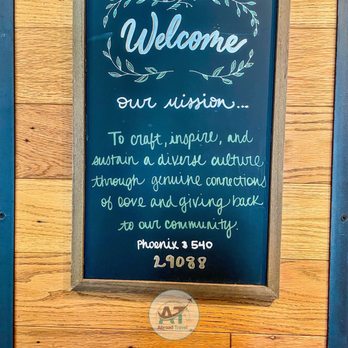 Welcome
our mission...
To craft, inspire, and
sustain a diverse culture
through genuine connections
of love and giving back
to our community.
Phoenix & 540
29088
AT
Abroad Travel